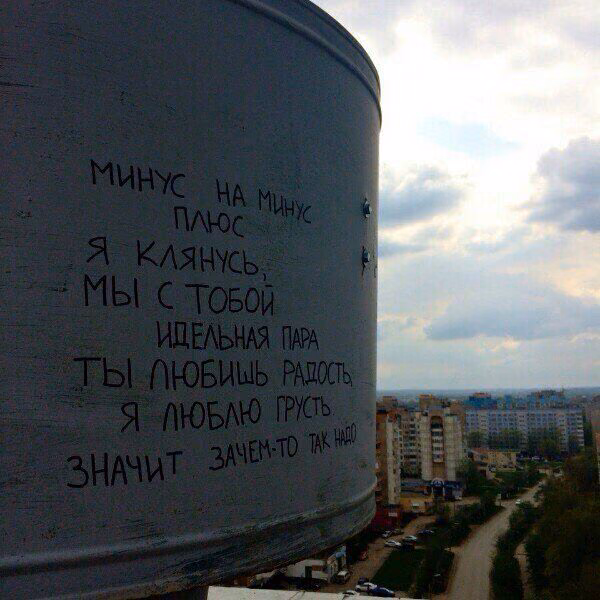 МИНУС НА МИНУС
ПЛЮС
Я КЛЯНУСЬ,
МЫ С ТОБОЙ
ИДЕЛЬНАЯ ПАРА
ТЫ ЛЮБИШЬ РАДОСТЬ,
Я ЛЮБЛЮ ГРУСТЬ
ЗНАЧИТ ЗАЧЕМ-ТО ТАК НАДО